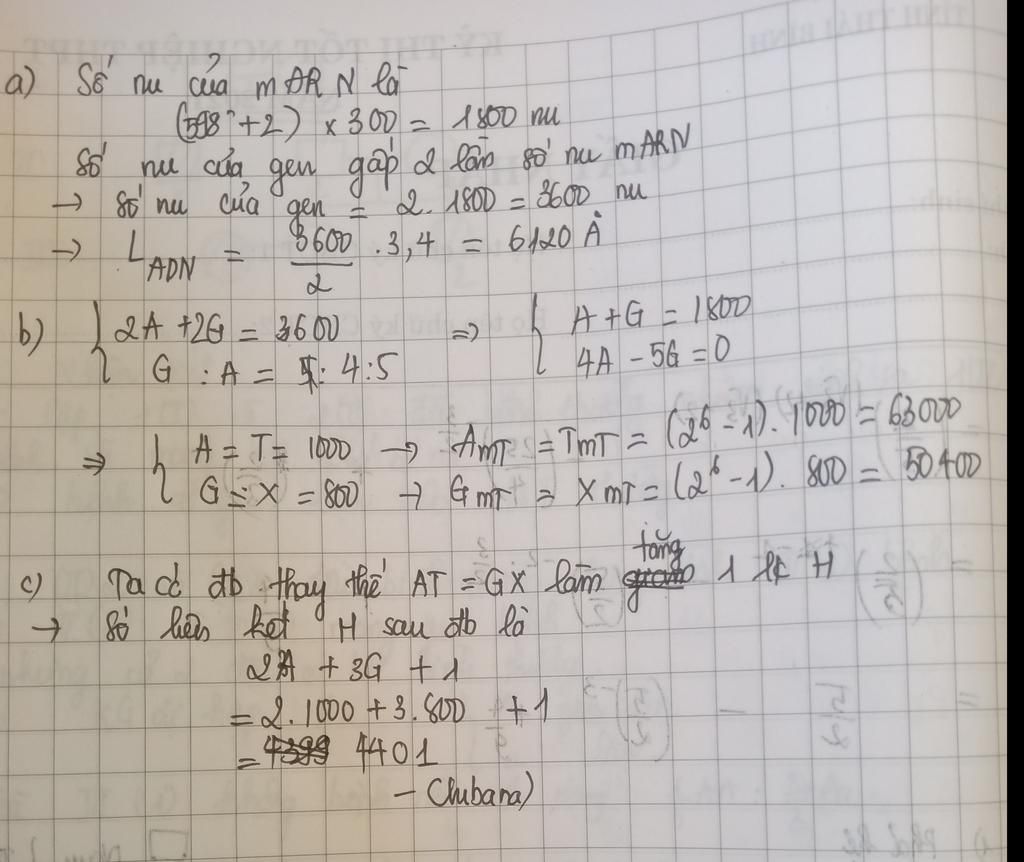 a) Số nu của mARN là
(598 + 2) x 300 = 1800 nu
Số nu của gen gấp 2 lần số nu mARN
→ Số nu của gen = 2. 1800 = 3600 nu
→ L ADN = 3600/2 . 3,4 = 6120 Å
b) { 2A + 2G = 3600 => { A + G = 1800
G : A = 4:5 4A - 5G = 0
=> { A = T = 1000 → AmT = TmT = (2^6 - 1). 1000 = 63000
G = X = 800 → GmT = XmT = (2^6 - 1). 800 = 50400
c) Ta có đb thay thế AT = GX làm tăng 1 lk H
→ Số liên kết H sau đb là
2A + 3G + 1
= 2.1000 + 3.800 + 1
= 4401
- Chubana)